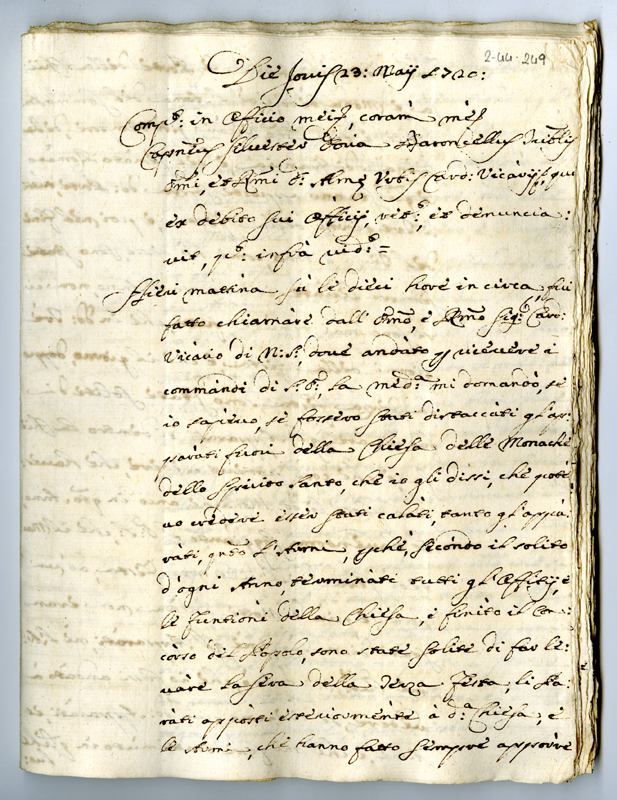 2-44-249
Die Jovis 23: Maij 1720:
Comp.t: in Officio mei, coram me
Silvester Baroncellus
Emi, et Rmi D: Almæ Urbis Card: Vicarij, qui
ex debito sui Officij, ret.t: et denuncia:
vit, p.t: infrà vid.t:=
Hieri mattina sù le dieci hore in circa, fui
fatto chiamare dall' Emo, e Rmo Sig.r Card:
Vicario di N: S:, dove andàto p ricevere i
commandi di S: E:, la med.a mi domandò, se
io sapevo, se fossero stati distaccàti gl' ap:
parati fuori della Chiesa delle Monache
dello Spirito Santo, che io gli dissi, che potè
vo credere esser stati calati, tanto gl' appa:
ràti, qnto l' Armi, pchè, secondo il solito
d'ogni Anno, terminàti tutti gl' Offitij, e
le funtioni della Chiesa, e finito il Con:
corso del Popolo, sono state solite di far le:
vàre la sera della terza festa, li Pa:
ràti appòsti esteriormente à d.a Chiesa, e
le Armi, che hanno fatto sempre apporre